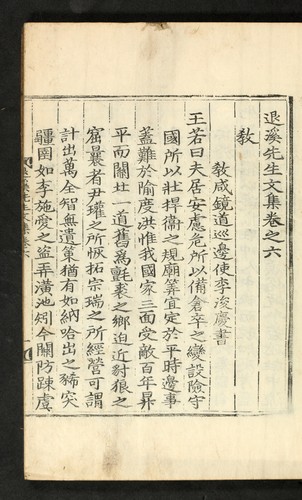 退溪先生文集卷之六
敎
敎咸鏡道巡邊使李浚慶書
王若曰夫居安慮危所以備倉卒之變設險守
國所以壯捍衛之規廟筭宜定於平時邊事
蓋難於隃度洪惟我國家三面受敵百年昇
平而關北一道舊爲氈裘之鄕迫近豺狼之
窟曩者尹瓘之所恢拓宗瑞之所經營可謂
計出萬全智無遺策猶有如納哈出之豨突
疆圉如李施愛之盜弄潢池矧今關防踈虞